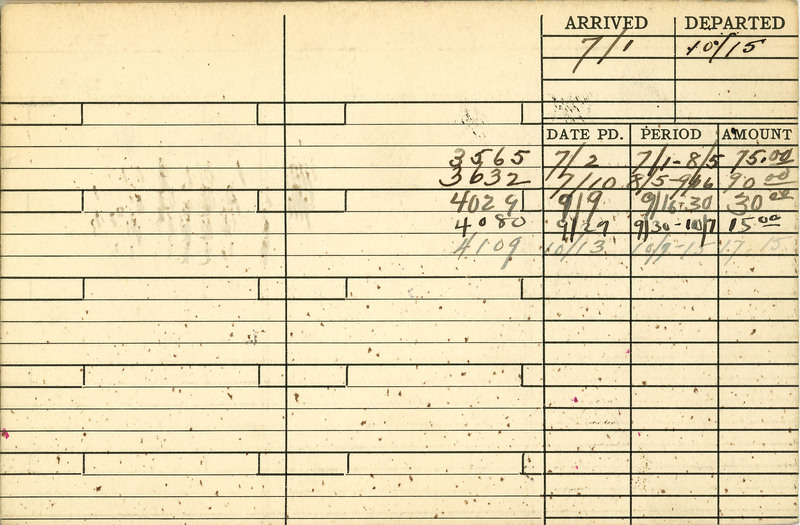 ARRIVED DEPARTED
7/1 10/15
DATE PD. PERIOD AMOUNT
3565 7/2 7/1-8/5 75.00
3632 7/10 8/5-9/16 90 00
4029 9/9 9/16-30 30 00
4080 9/29 9/30-10/7 15 00
4109 10/13 10/7-15 17.15